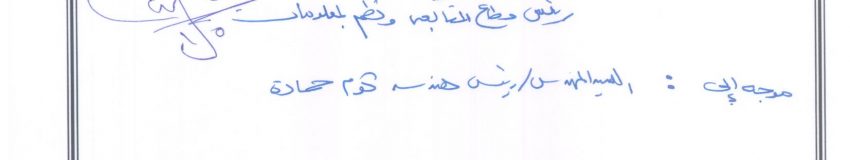 رئيس قطاع المتابعة ونظم المعلومات
موجه إلى : السيد المهندس / رئيس هندسة كوم حمادة